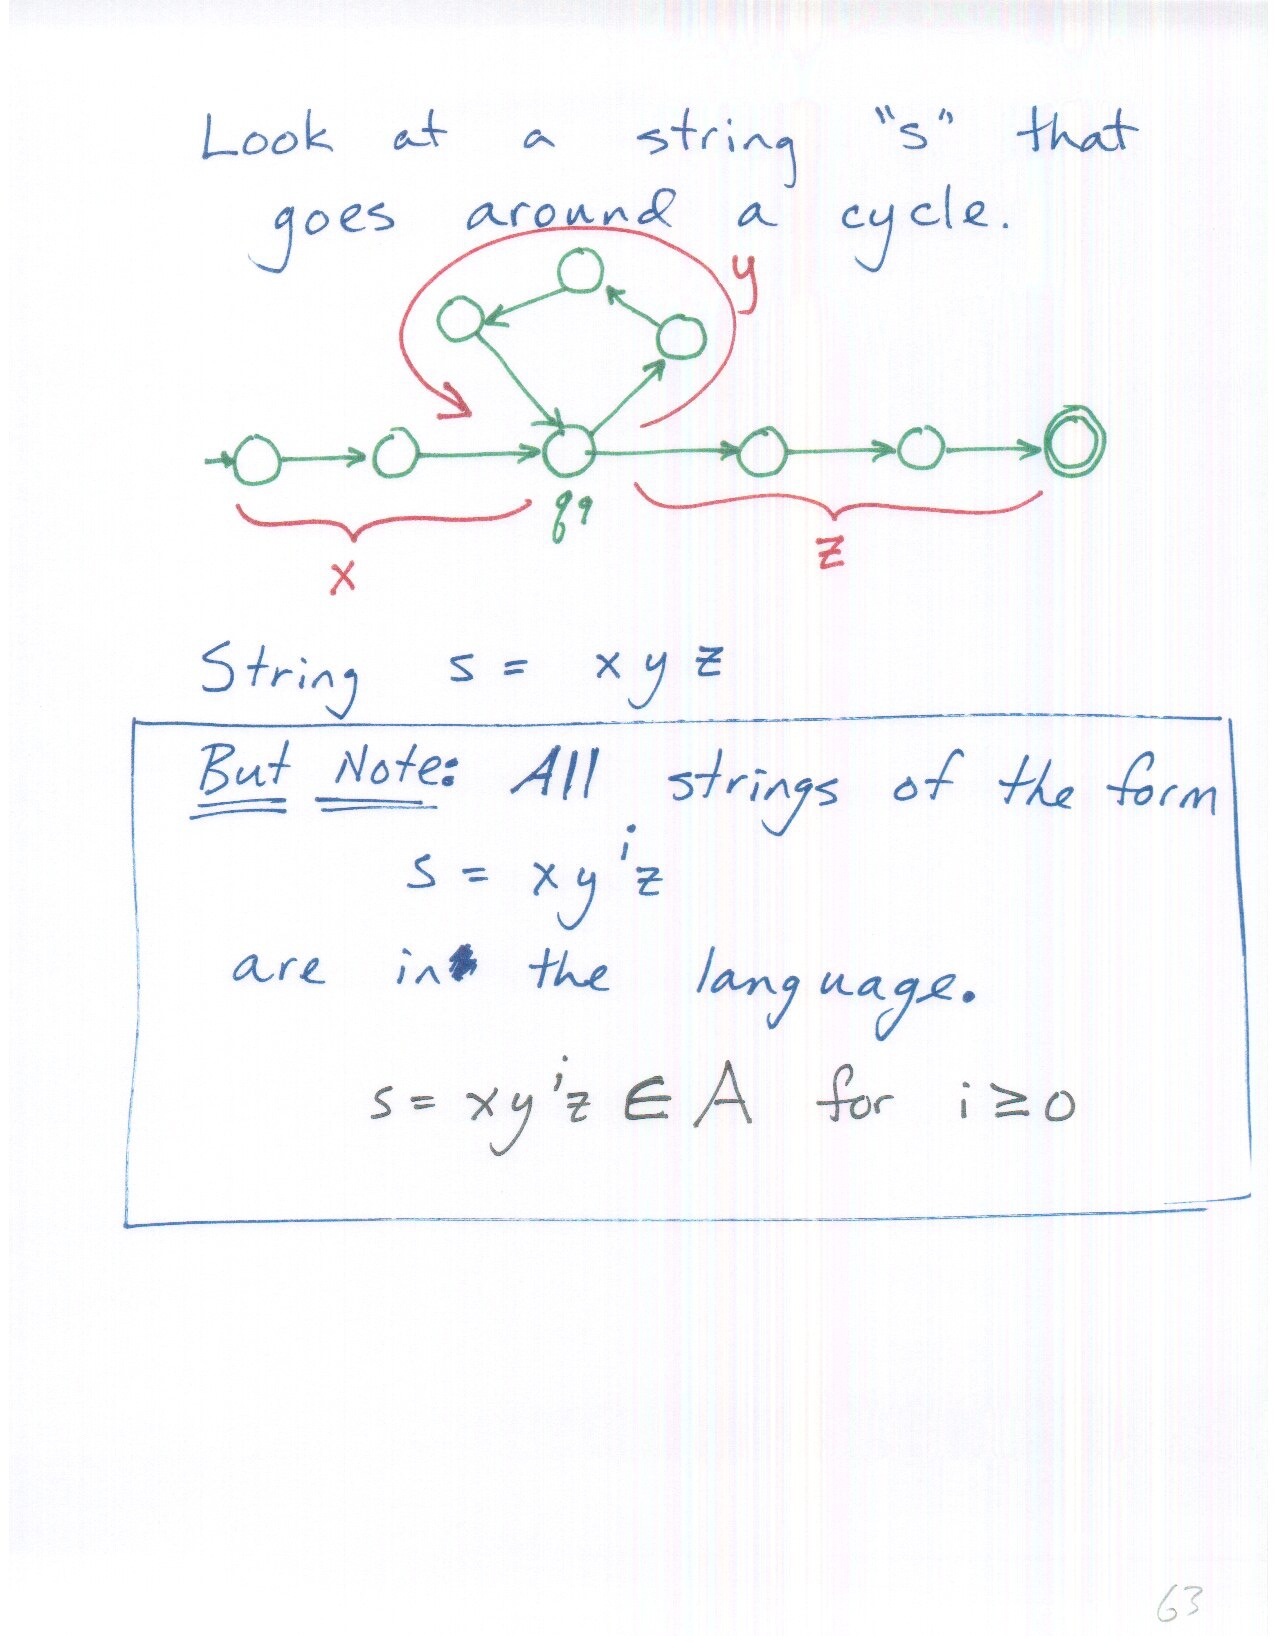 Look at a string "s" that
goes around a cycle.
y
q9
x
z
String s = x y z
But Note: All strings of the form
s = x yⁱ z
are in the language.
s = x yⁱ z ∈ A for i ≥ 0
63